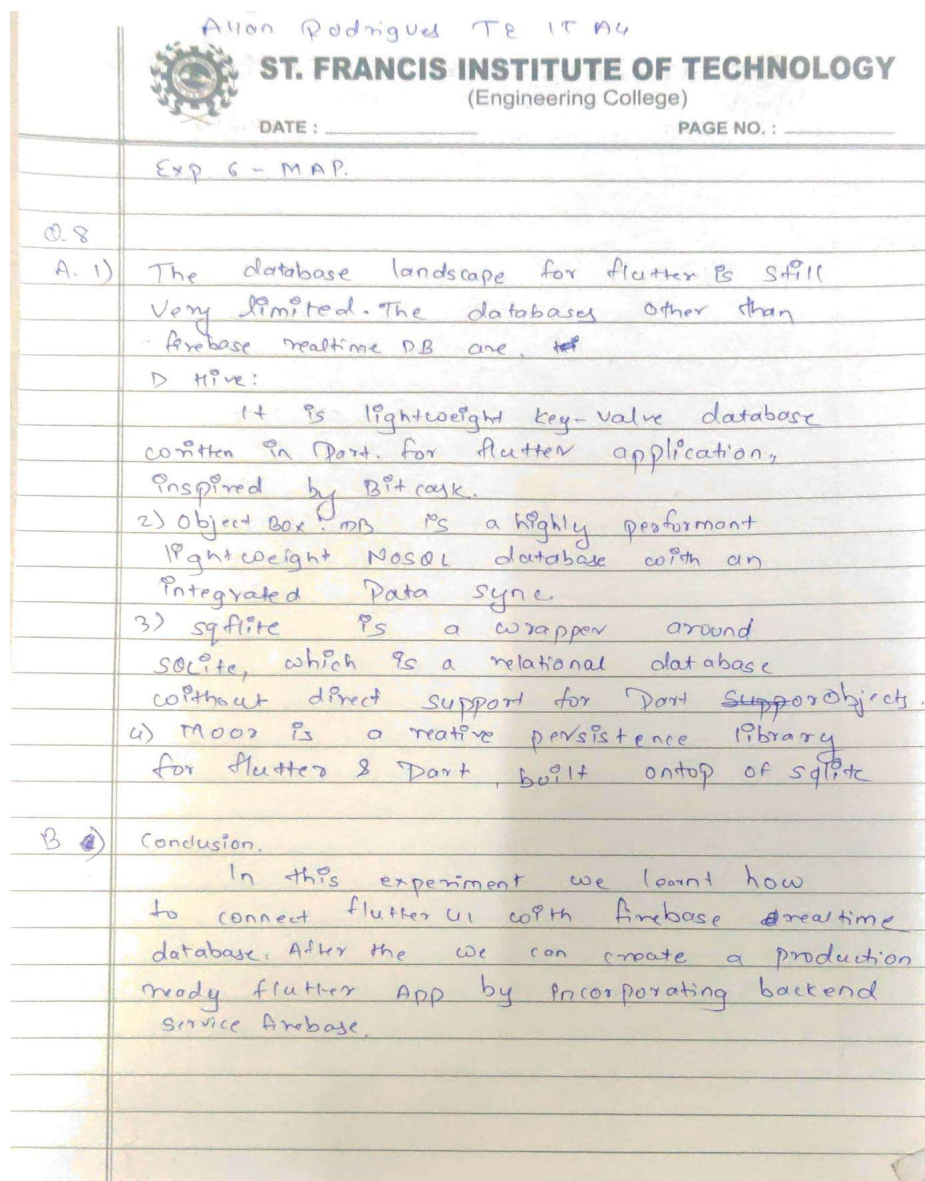 Allan Rodrigues TE IT A4
ST. FRANCIS INSTITUTE OF TECHNOLOGY
(Engineering College)
DATE : PAGE NO. :
Exp 6 - MAP.
Q.8
A. 1) The database landscape for flutter is still
very limited. The databases other than
firebase realtime DB are.
1) Hive:
It is lightweight key-value database
written in Dart. for flutter application,
inspired by Bitcask.
2) Object Box: DB is a highly performant
lightweight NOSQL database with an
integrated Data sync
3) sqflite is a wrapper around
SQLite, which is a relational database
without direct support for Dart objects.
4) Moor is a reative persistence library
for flutter & Dart, built ontop of sqlite
B) Conclusion.
In this experiment we learnt how
to connect flutter UI with firebase realtime
database. After the we can create a production
ready flutter App by incorporating backend
service firebase.